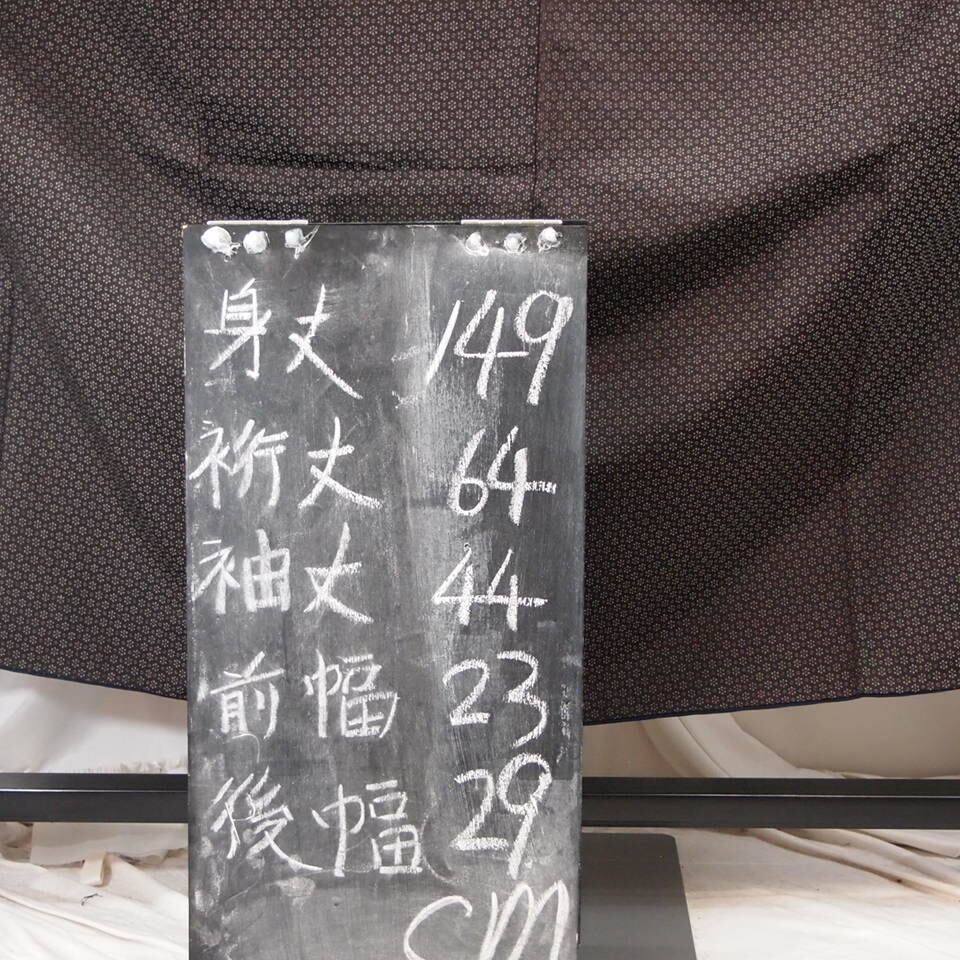 身丈 149
裄丈 64
袖丈 44
前幅 23
後幅 29
CM